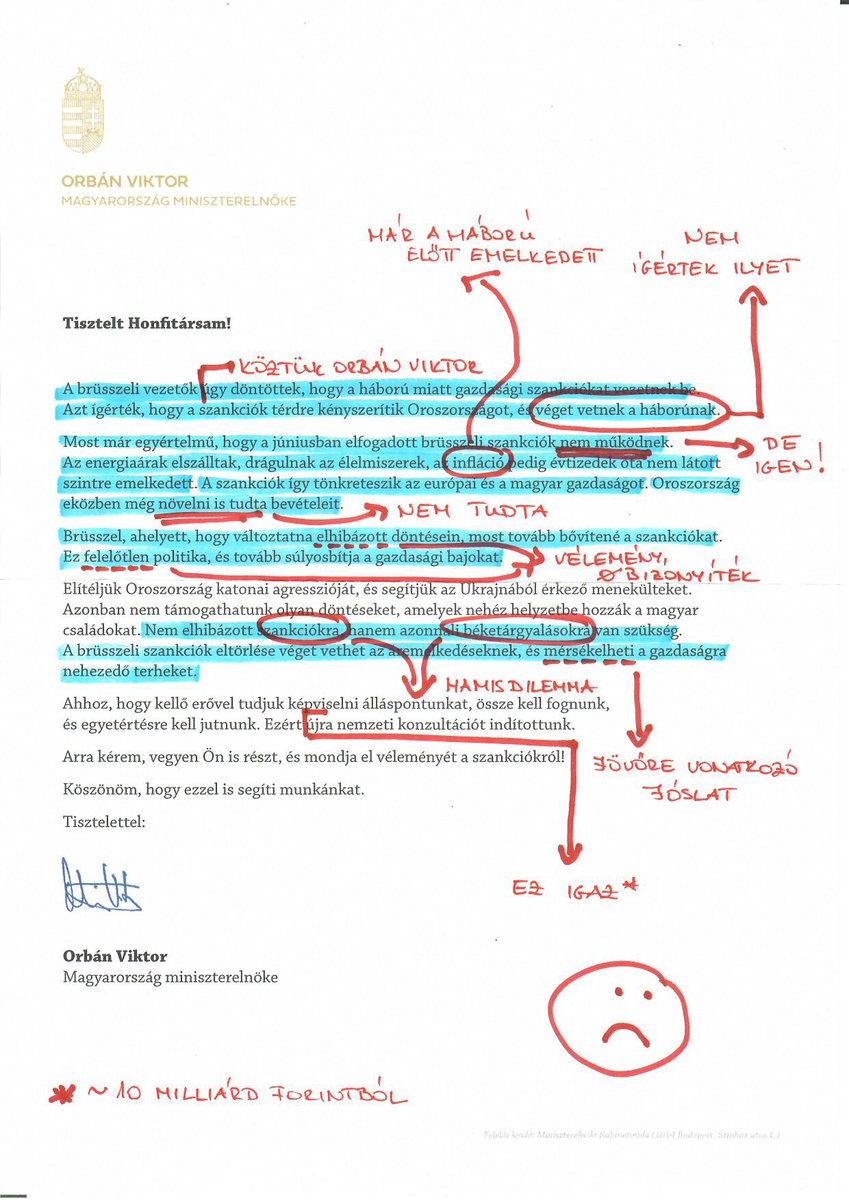 ORBÁN VIKTOR
MAGYARORSZÁG MINISZTERELNÖKE
MÁR A HÁBORÚ
ELŐTT EMELKEDETT
NEM
ÍGÉRTEK ILYET
Tisztelt Honfitársam!
KÖZTÜK ORBÁN VIKTOR
A brüsszeli vezetők úgy döntöttek, hogy a háború miatt gazdasági szankciókat vezetnek be.
Azt ígérték, hogy a szankciók térdre kényszerítik Oroszországot, és véget vetnek a háborúnak.
Most már egyértelmű, hogy a júniusban elfogadott brüsszeli szankciók nem működnek.
DE
IGEN!
Az energiaárak elszálltak, drágulnak az élelmiszerek, az infláció pedig évtizedek óta nem látott
szintre emelkedett. A szankciók így tönkreteszik az európai és a magyar gazdaságot. Oroszország
eközben még növelni is tudta bevételeit.
NEM TUDTA
Brüsszel, ahelyett, hogy változtatna elhibázott döntésein, most tovább bővítené a szankciókat.
Ez felelőtlen politika, és tovább súlyosbítja a gazdasági bajokat.
VÉLEMÉNY,
Ø BIZONYÍTÉK
Elítéljük Oroszország katonai agresszióját, és segítjük az Ukrajnából érkező menekülteket.
Azonban nem támogathatunk olyan döntéseket, amelyek nehéz helyzetbe hozzák a magyar
családokat. Nem elhibázott szankciókra, hanem azonnali béketárgyalásokra van szükség.
A brüsszeli szankciók eltörlése véget vethet az áremelkedéseknek, és mérsékelheti a gazdaságra
nehezedő terheket.
HAMIS DILEMMA
Ahhoz, hogy kellő erővel tudjuk képviselni álláspontunkat, össze kell fognunk,
és egyetértésre kell jutnunk. Ezért újra nemzeti konzultációt indítottunk.
Arra kérem, vegyen Ön is részt, és mondja el véleményét a szankciókról!
JÖVŐRE VONATKOZÓ
JÓSLAT
Köszönöm, hogy ezzel is segíti munkánkat.
Tisztelettel:
EZ IGAZ*
Orbán Viktor
Magyarország miniszterelnöke
* ~ 10 MILLIÁRD FORINTBÓL
Felelős kiadó: Miniszterelnöki Kabinetiroda (1014 Budapest, Színház utca 1.)